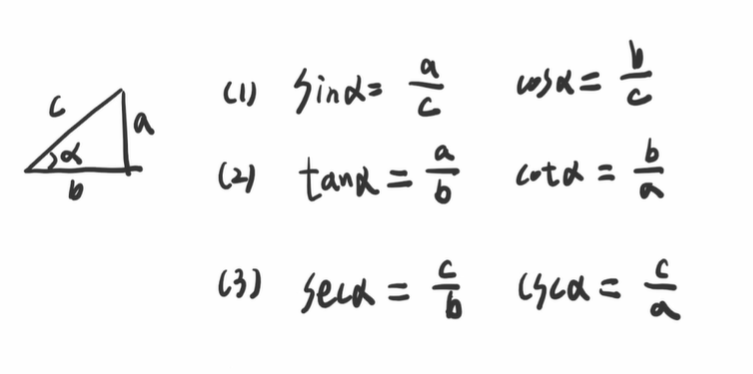 c
a
α
b
(1) sinα= a/c cosα= b/c
(2) tanα= a/b cotα= b/a
(3) secα= c/b cscα= c/a